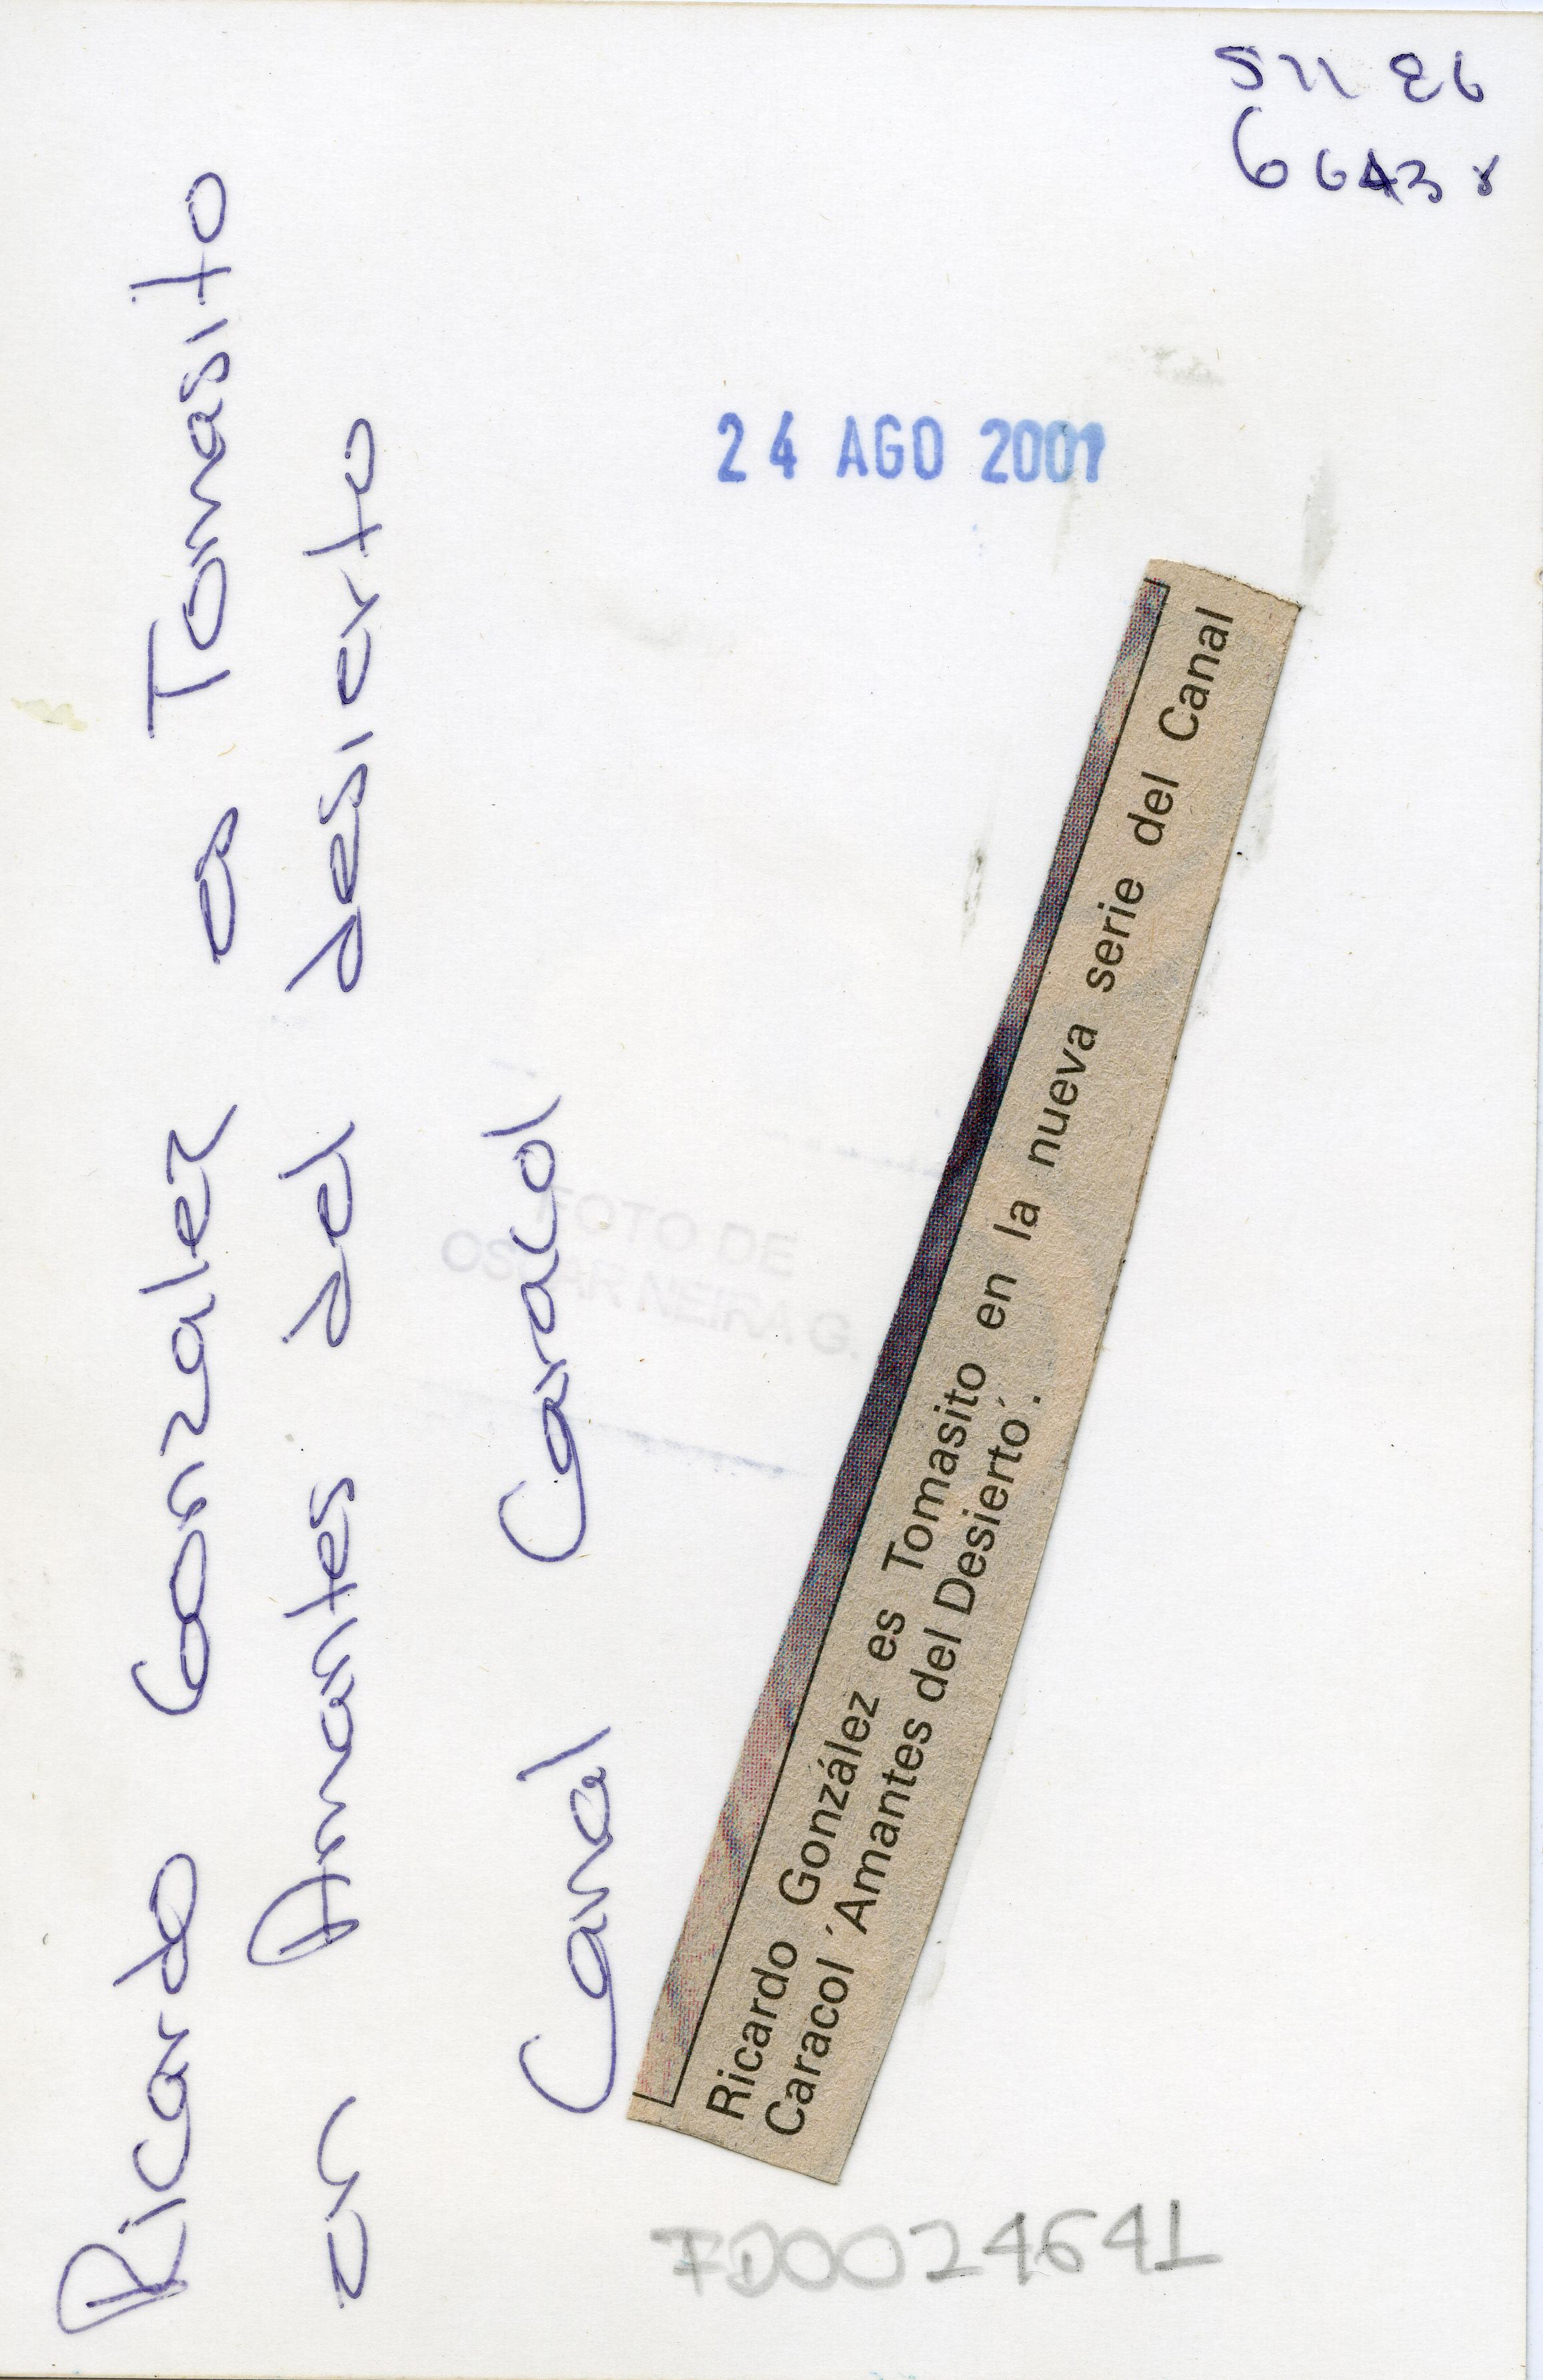 Ricardo Gonzalez a Tomasito
en Amantes del desierto
Canal Caracol
24 AGO 2001
FOTO DE
OSCAR NEIRA G.
Ricardo González es Tomasito en la nueva serie del Canal
Caracol ´Amantes del Desierto´.
FD0024641